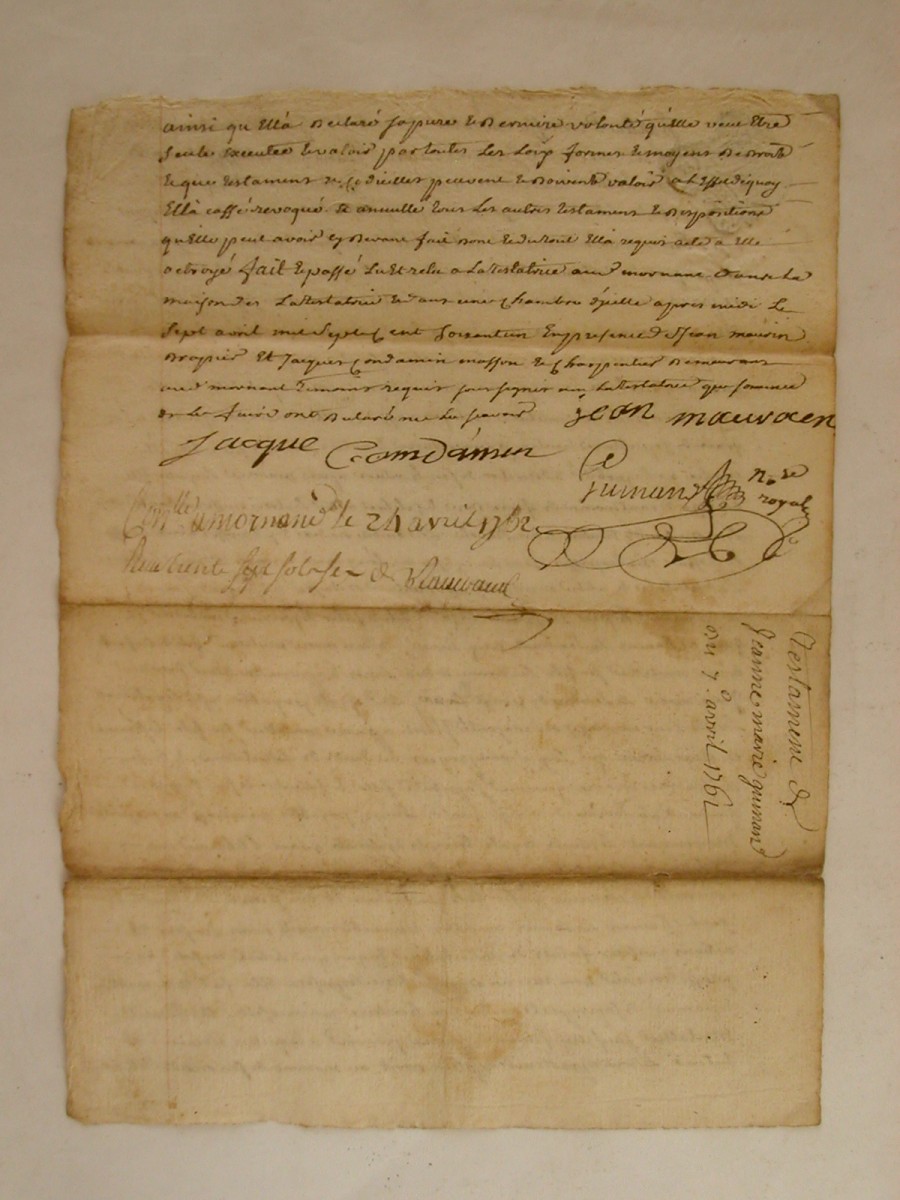 ainsi qu Ella declaré sa pure & derniere volonté quelle veut Etre
seule executée & valoir par toutes Les Loix formes & moyens de droit
& que testament & Codicilles peuvent & doivent valoir a L Effet dequoy
Ella cassé revoqué & annullé tous Les autres testament & dispositions
quElle peut avoir cy devant fait dont & du tout Ella requis acte a Elle
octroyé fait & passé Lu Et relu a La testatrice au d mornant dans La
maison de La testatrice & dans une Chambre d'jcelle apres midi Le
sept avril mil sept Cent soixante En presence de Jean mauvin
Et Jacques Condamin masson & Charpentier demeurant
au d mornant temoins requis sousigner La testatrice que sommée
de Le faire ont declaré ne Le savoir jean mauvaen
Jacque Comdamin
guinand n.re royal
Con.llé a mornand le 24 avril 1762
Reçu trente sept sols
Testament de
Jeanne marie guinand
du 7.o avril 1762